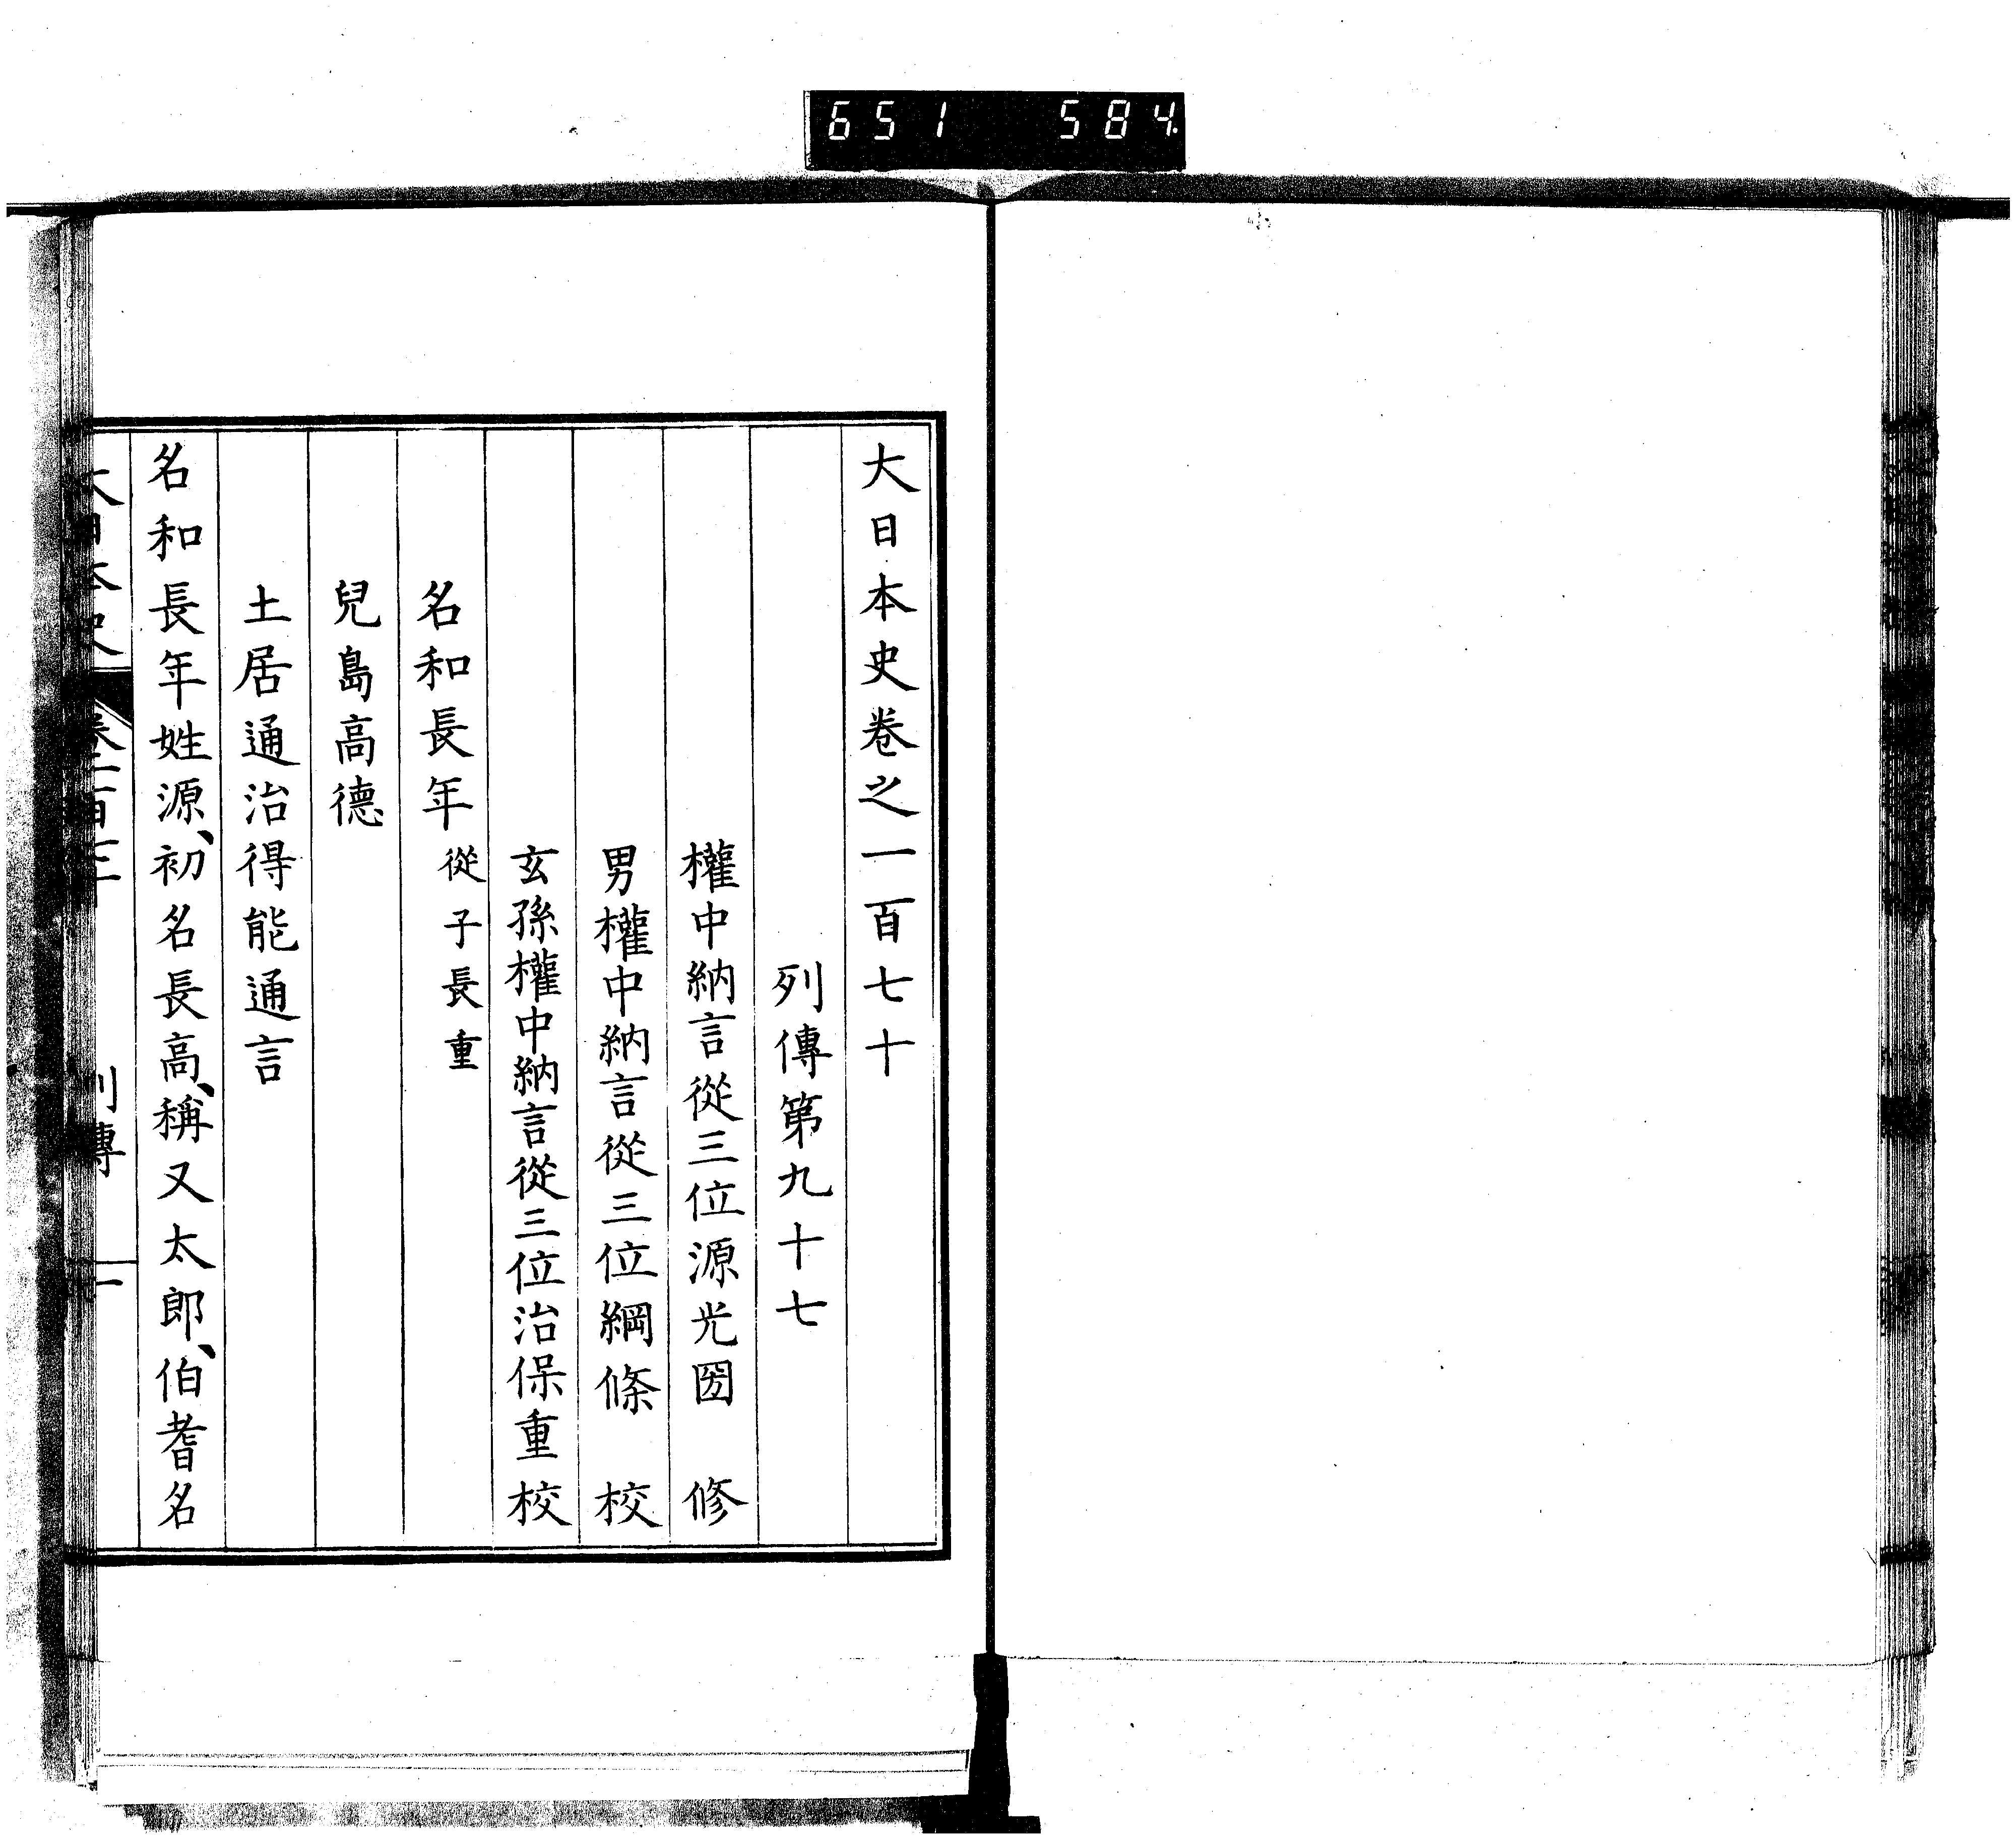 651 584
大日本史卷之一百七十
列傳第九十七
權中納言從三位源光圀 修
男權中納言從三位綱條 校
玄孫權中納言從三位治保重校
名和長年 從子長重
兒島高德
土居通治得能通言
名和長年姓源、初名長高、稱又太郎、伯耆名
大日本史 列傳 一